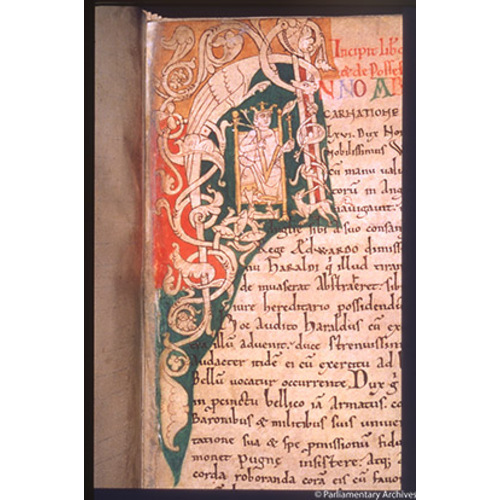 Incipit lib
& de Posses
NNO AB
CARNATIONE
lxvi. Dux Nor
nobilissimus
cū manu vali
torū in Ang
navigavit.
sibi a suo consan
Rege Ædwardo dimiss
Haraldi qͥ illud tiran
de invaserat Abstraheret. sib
jure hereditario possidendū
hoc Audito Haraldus cū ex
illū advenit. duce strenuissim
Audacter itidē ei cū exercitu ad
Bellū vocatur occurrente. Dux g
in procinctu bellico iā Armatus. co
Baronibus & militibus suis univer
tatione sua & spe pmissionū fidu
monet pugne insistere. Atq
corda roboranda cora eis cū favo
© Parliamentary Archives